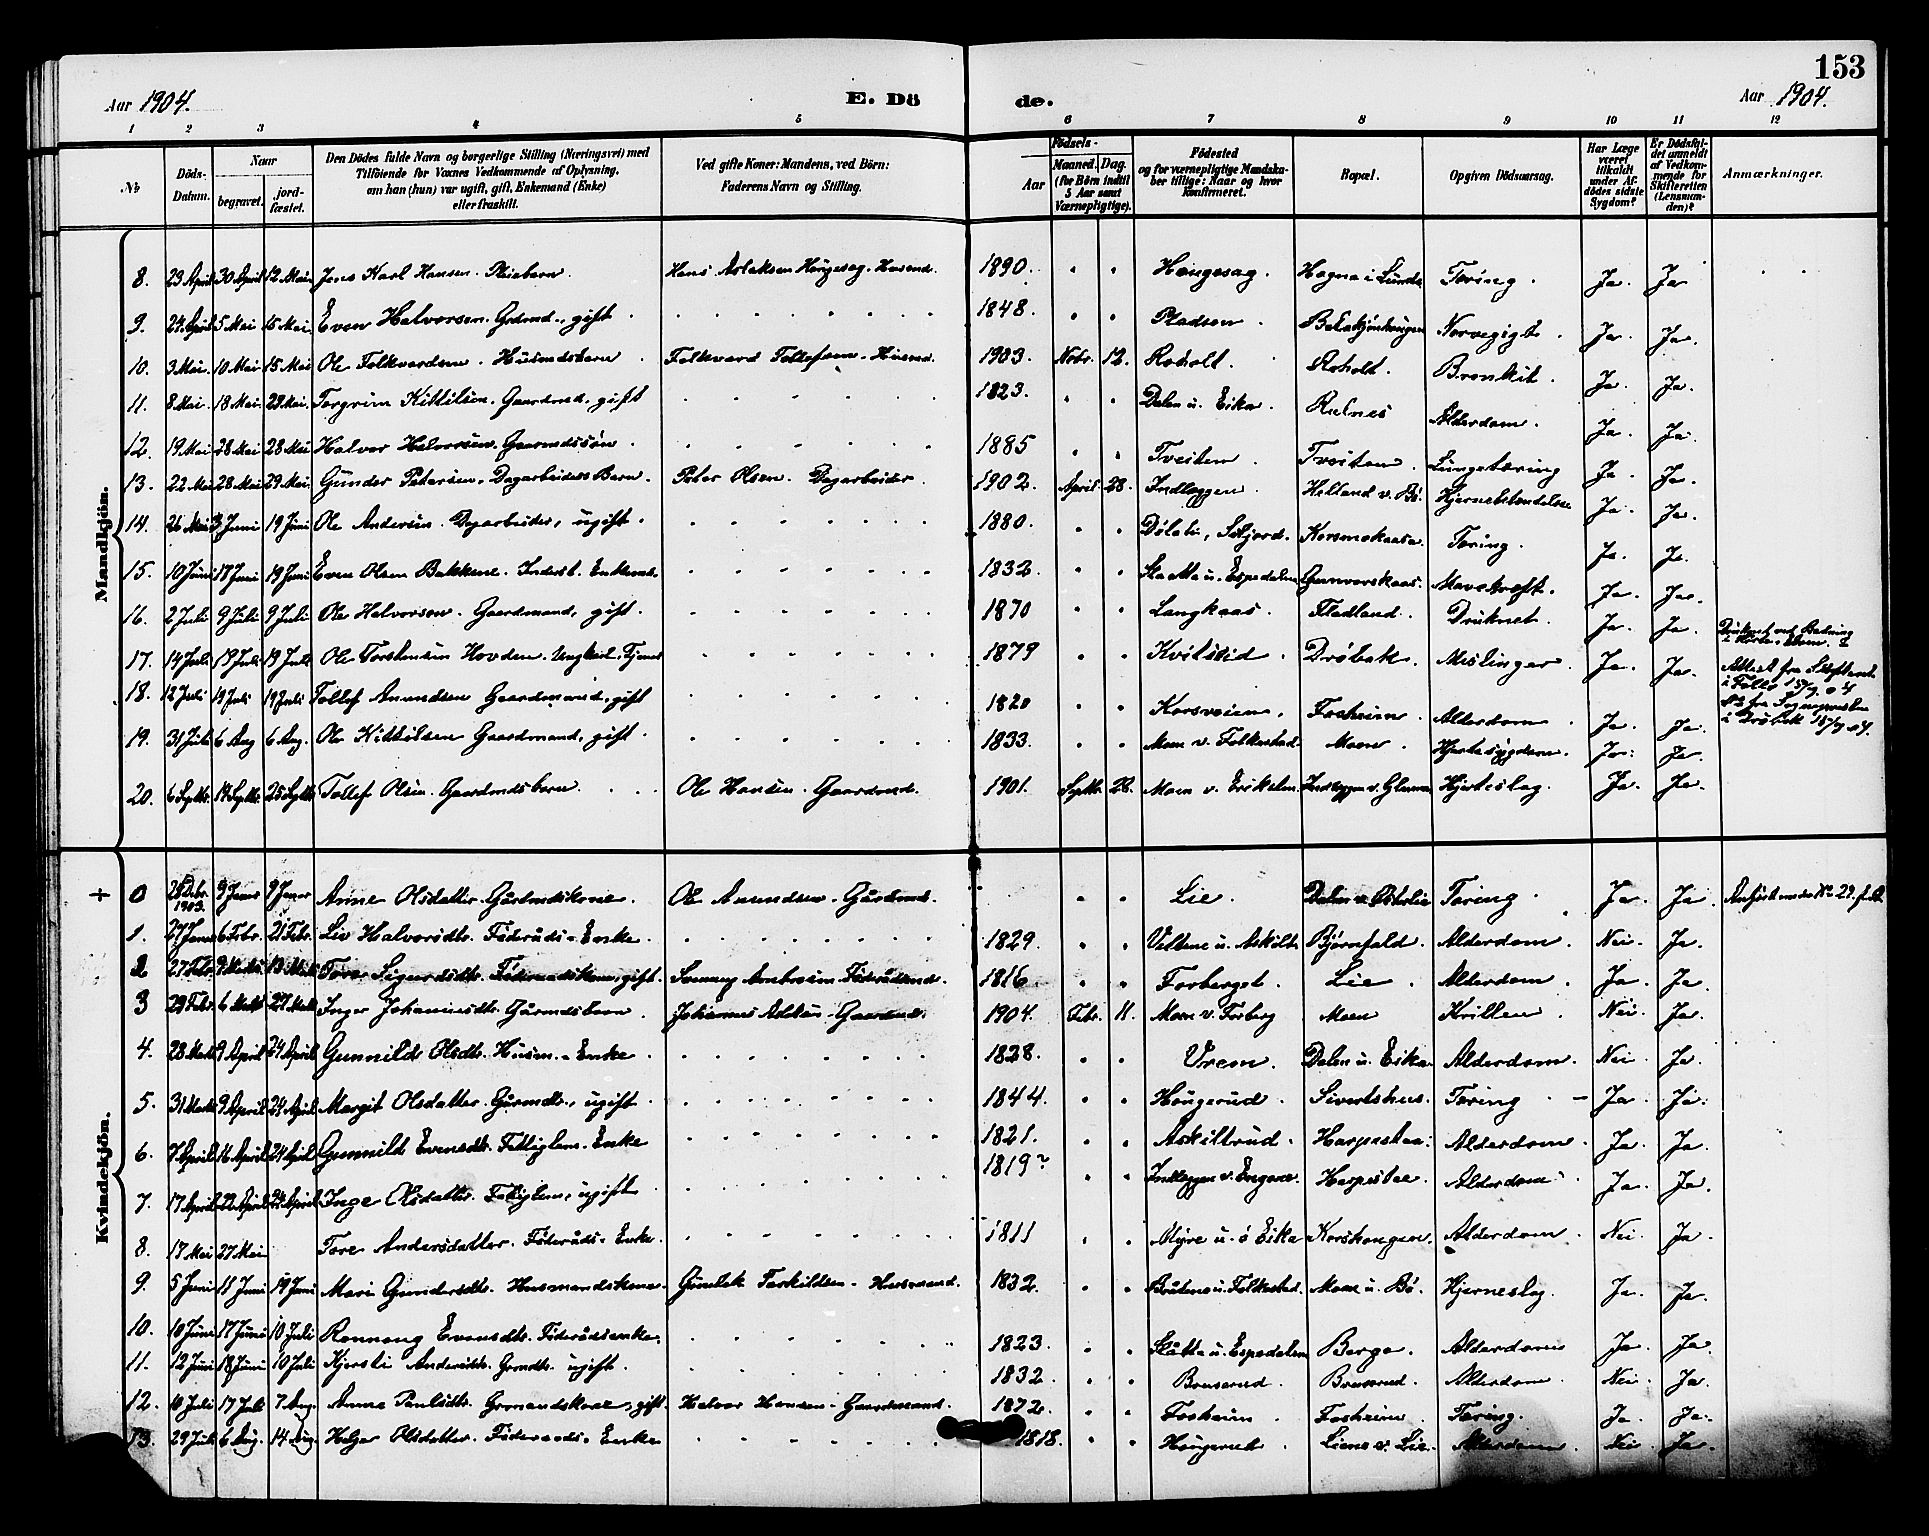 153
Aar 1904. E. Dö de. Aar 1904.
1 2 3 4 5 6 7 8 9 10 11 12
No Döds-Datum. Naar begravet. jord-fæstet. Den Dödes fulde Navn og borgerlige Stilling (Næringsvei) med Tilföiende for Voxnes Vedkommende af Oplysning, om han (hun) var ugift, gift, Enkemand (Enke) eller fraskilt. Ved gifte Koner: Mandens, ved Börn: Faderens Navn og Stilling. Aar Födsels- Maaned. Dag. (for Börn indtil 5 Aar samt Værnepligtige). Födested og for værnepligtige Mandskaber tillige: Naar og hvor konfirmeret. Bopæl. Opgiven Dödsaarsag. Har Læge været tilkaldt under Afdödes sidste Sygdom? Er Dödsfaldet anmeldt af Vedkommende for Skifteretten (Lensmanden)? Anmærkninger.
Mandkjön.
8. 23 April 30 April 12 Mai Jens Karl Hansen. Pleiebarn. Hans Aslaksen Haugesag. Husmd. 1890. Haugesag. Hogna i Lunde Tæring. Ja. Ja
9. 29 April 5 Mai 15 Mai Even Halvorsen. Grdmd., gift 1848. Pladsen. Ja. Ja.
10. 3 Mai. 10 Mai 15 Mai Ole Folkvardsen. Husmdsbarn Folkvard Tollefsen. Husmd. 1903. Novbr. 12. Roholt. Roholt. Bronkit. Ja. Ja.
11. 8 Mai. 18 Mai 29 Mai. Torgrim Kittilsen. Gaardmd., gift 1823. Dalen u. Eika. Alderdom. Ja. Ja.
12. 19 Mai 28 Mai 28 Mai Halvor Halvorsen. Gaarmdssön. 1885 Tveiten. Tveiten. Lungetæring Ja. Ja.
13. 22 Mai 28 Mai 29 Mai. Gunder Petersen. Dagarbeiders Barn. Peter Olsen. Dagarbeider. 1902. April 28. Indlæggen. Helland v. Bö. Ja. Ja.
14. 26 Mai 3 Juni 19 Juni Ole Andersen. Dagarbeider, ugift. 1880. Seljord. Korsmokaasa. Tæring. Ja. Ja.
15. 10 Juni 17 Juni 19 Juni Even Olsen Bakkene. Inderst. Enkemd. 1832. Slaatta u. Espedalen Gunvorskaas. Mavekræft. Ja. Ja.
16. 2 Juli 9 Juli 9 Juli Ole Halvorsen. Gaardmand, gift. 1870 Langkaas. Fladland. Druknet. Ja. Ja. Druknet ved Badning
17. 14 Juli 19 Juli 19 Juli Ole Torstensen Hovden. Ungkarl. Tjener 1879 Kvitseid. Dröbak. Meslinger. Ja. Ja. Attest fra i Follo 15/9 04
18. 12 Juli 19 Juli 19 Juli Tollef Amundsen Gaardmand, gift 1820 Korsveien. Fosheim. Alderdom. Ja. Ja. i Dröbak 15/9 04.
19. 31 Juli 6 Aug 6 Aug. Ole Kittilsen Gaardmand, gift. 1833. Moen v. Folkestad. Moen. Hjertesygdom. Ja. Ja.
20. 6 Septbr. 14 Septbr. 25 Septbr. Tollef Olsen. Gaardmdsbarn. Ole Hansen. Gaardmd. 1901. Septbr. 28. Moen v. Erikstein. Hjerteslag. Ja. Ja.
Kvindekjön.
+ 0 25 Debr. 1903. 9 Januar 9 Januar Anne Olsdatter. Gårdmdskone. Ole Amundsen. Gårdmd. Lie. Tæring. Ja. Ja. Anfört under No. 29. f. A.
1. 27 Janr. 6 Febr. 21 Febr. Liv Halvorsdtr. Föderåds-Enke. 1829. Björnfald. Alderdom. Nei. Ja.
2 27 Febr. 9 Marts 13 Marts Tore Sigurdsdtr. Föderaadskone, gift. 1816 Forberget. Lie. Alderdom. Ja. Ja.
3 29 Febr. 6 Marts 27 Marts Inger Johannesdtr. Gårmdsbarn. Johannes Gaardmd. 1904. Febr. 11. Moen v. Forberg Moen Krillen. Nei. Ja.
4. 28 Marts 9 April 24 April Gunnild Olsdtr. Husm.-Enke. 1828. Vreim. Dalen u. Eika Alderdom. Nei. Ja.
5. 31 Marts 9 April 24 April Margit Olsdatter. Gårmdtr., ugift. 1844. Haugerud. Sivertshus. Tæring. Ja. Ja.
6. 7 April 16 April 24 April Gunnild Evensdtr. Fattiglem. Enke 1821. Askiltrud. Alderdom. Ja. Ja.
7. 17 April 22 April 24 April Inge Olsdatter. Fattiglem, ugift 1819? Indlæggen v. Engene Alderdom. Ja. Ja.
8. 17 Mai 27 Mai Tore Andersdatter. Föderåds-Enke. 1811 Myre u. ö Eika Korshaugen. Alderdom. Nei. Ja.
9. 5 Juni 11 Juni 19 Juni Mari Gundersdtr. Husmandskone. Gunlek Torkildsen. Husmand. 1832. Moen u. Bö. Hjerneslag. Ja. Ja.
10. 10 Juni 17 Juni 10 Juli Ronnaug Evensdtr. Föderådsenke. 1823. Slåtta u. Espedalen Berge. Alderdom Ja. Ja.
11. 12 Juni 18 Juni 10 Juli Kjersti Andersdtr. Grmdtr. ugift. 1832. Bruserud. Bruserud. Alderdom. Nei. Ja.
12. 10 Juli 17 Juli 7 Aug. Anne Paulsdtr. Grmandskone, gift. Halvor Hansen. Gaardmand. 1872. Fosheim. Fosheim. Tæring. Ja. Ja.
13. 29 Juli 6 Aug. 14 Aug. Helge Olsdatter. Föderaads-Enke 1818. Haugerud. Liene v. Lie. Alderdom. Nei. Ja.